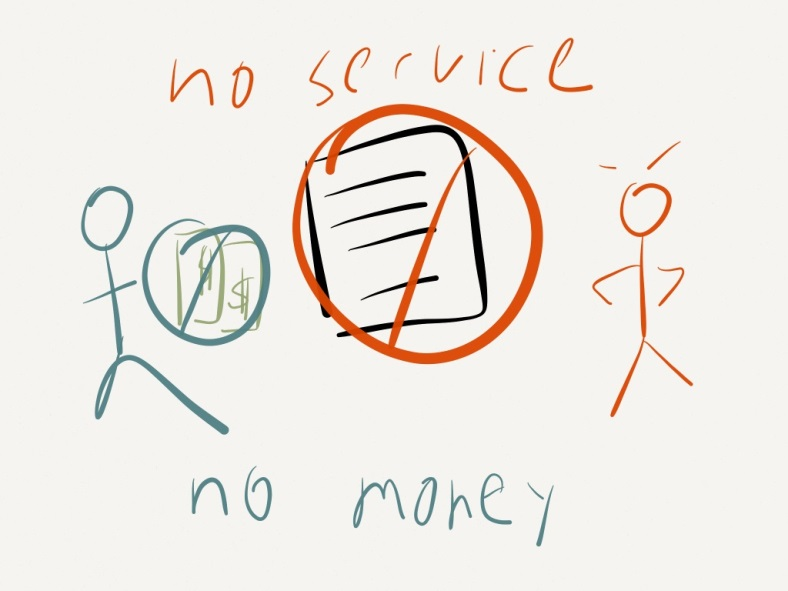 no service
$ $
no money